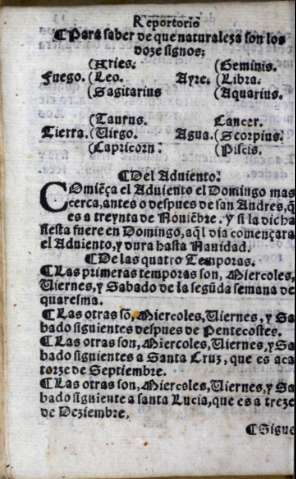 Reportorio
¶Para saber de que naturaleza son los
doze signos:
(Aries. (Geminis.
Fuego. (Leo. Ayre. (Libra.
(Sagitarius (Aquarius.
(Taurus. Cancer.
Tierra. (Uirgo. Agua. (Scorpius.
(Capricorn: (Piscis.
¶Del Aduiento:
Comiẽça el Aduiento el Domingo mas
cerca, antes o despues de san Andres, q̃
es a treynta de Nouiẽbre. y si la dicha
fiesta fuere en Domingo, aq̃l dia començara
el Aduiento, y dura hasta Nauidad.
¶De las quatro Temporas.
¶Las primeras temporas son, Miercoles,
Uiernes, y Sabado de la segũda semana de
quaresma.
¶Las otras sõ, Miercoles, Uiernes, y Sa
bado siguientes despues de Pentecostes.
¶Las otras son, Miercoles, Uiernes, y Sa
bado siguientes a Santa Cruz, que es aca
torze de Septiembre.
¶Las otras son, Miercoles, Uiernes, y Sa
bado siguiente a santa Lucia, que es a treze
de Deziembre.
¶Sigue